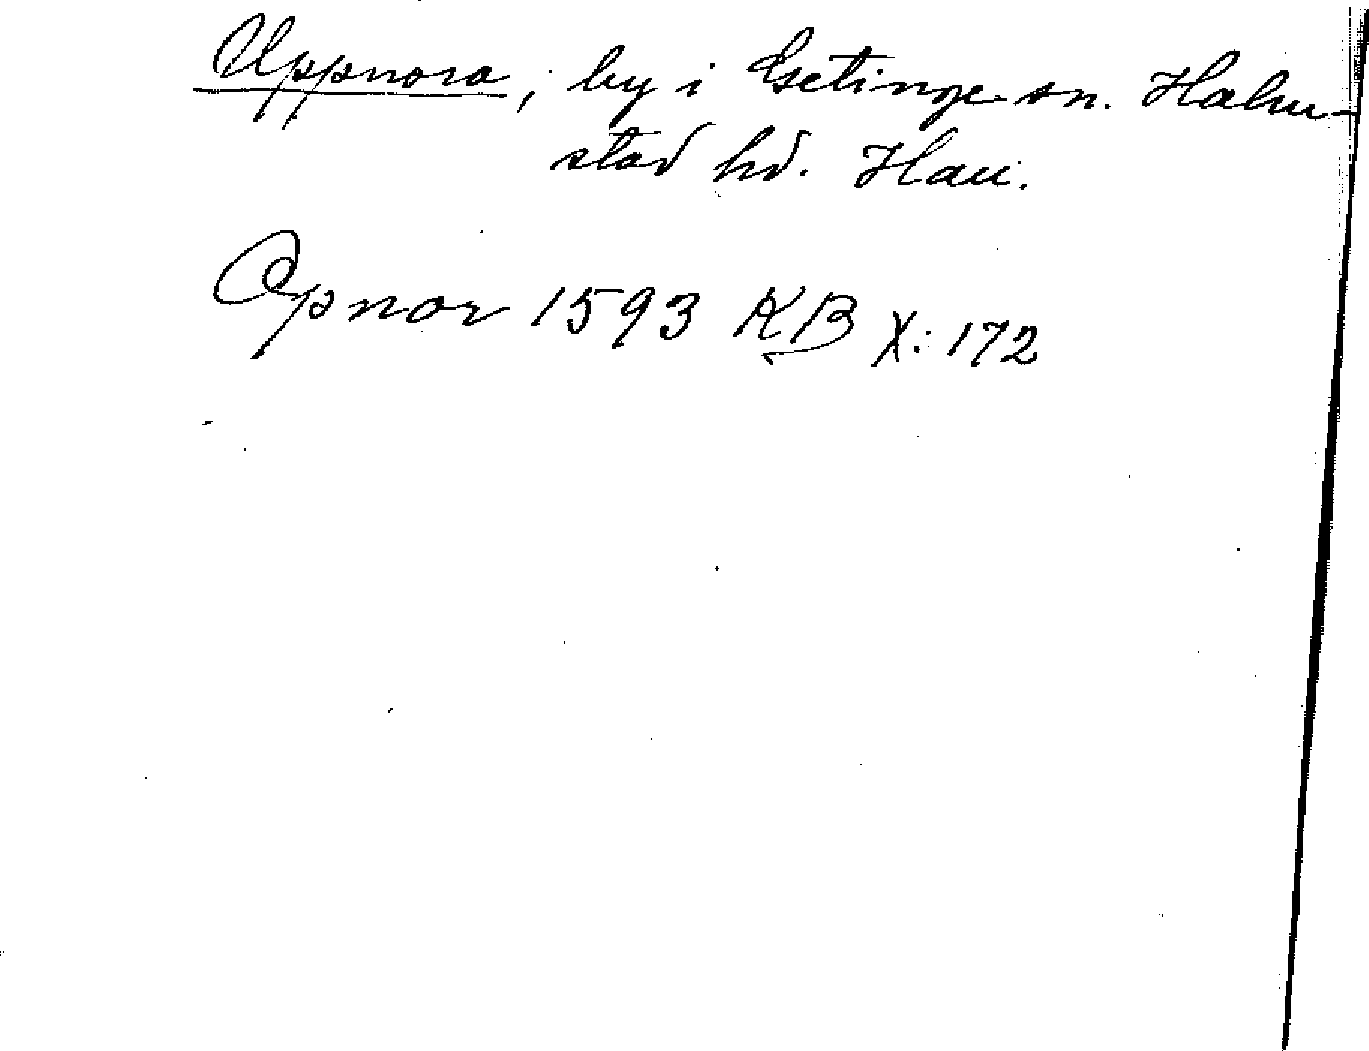 Uppnora, by i Getinge sn. Halm-
stad hd. Hall.
Opnor 1593 KB X: 172